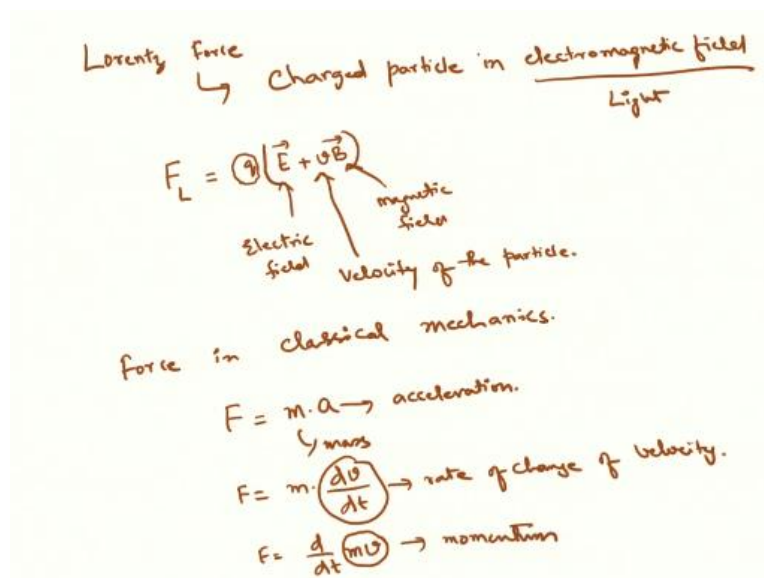 Lorentz force
↳ Charged particle in electromagnetic field
Light
F_L = q(E⃗ + vB⃗)
Electric field
magnetic field
velocity of the particle.
force in classical mechanics.
F = m.a → acceleration.
↳ mass
F = m. dv/dt → rate of change of velocity.
F = d/dt mv → momentum